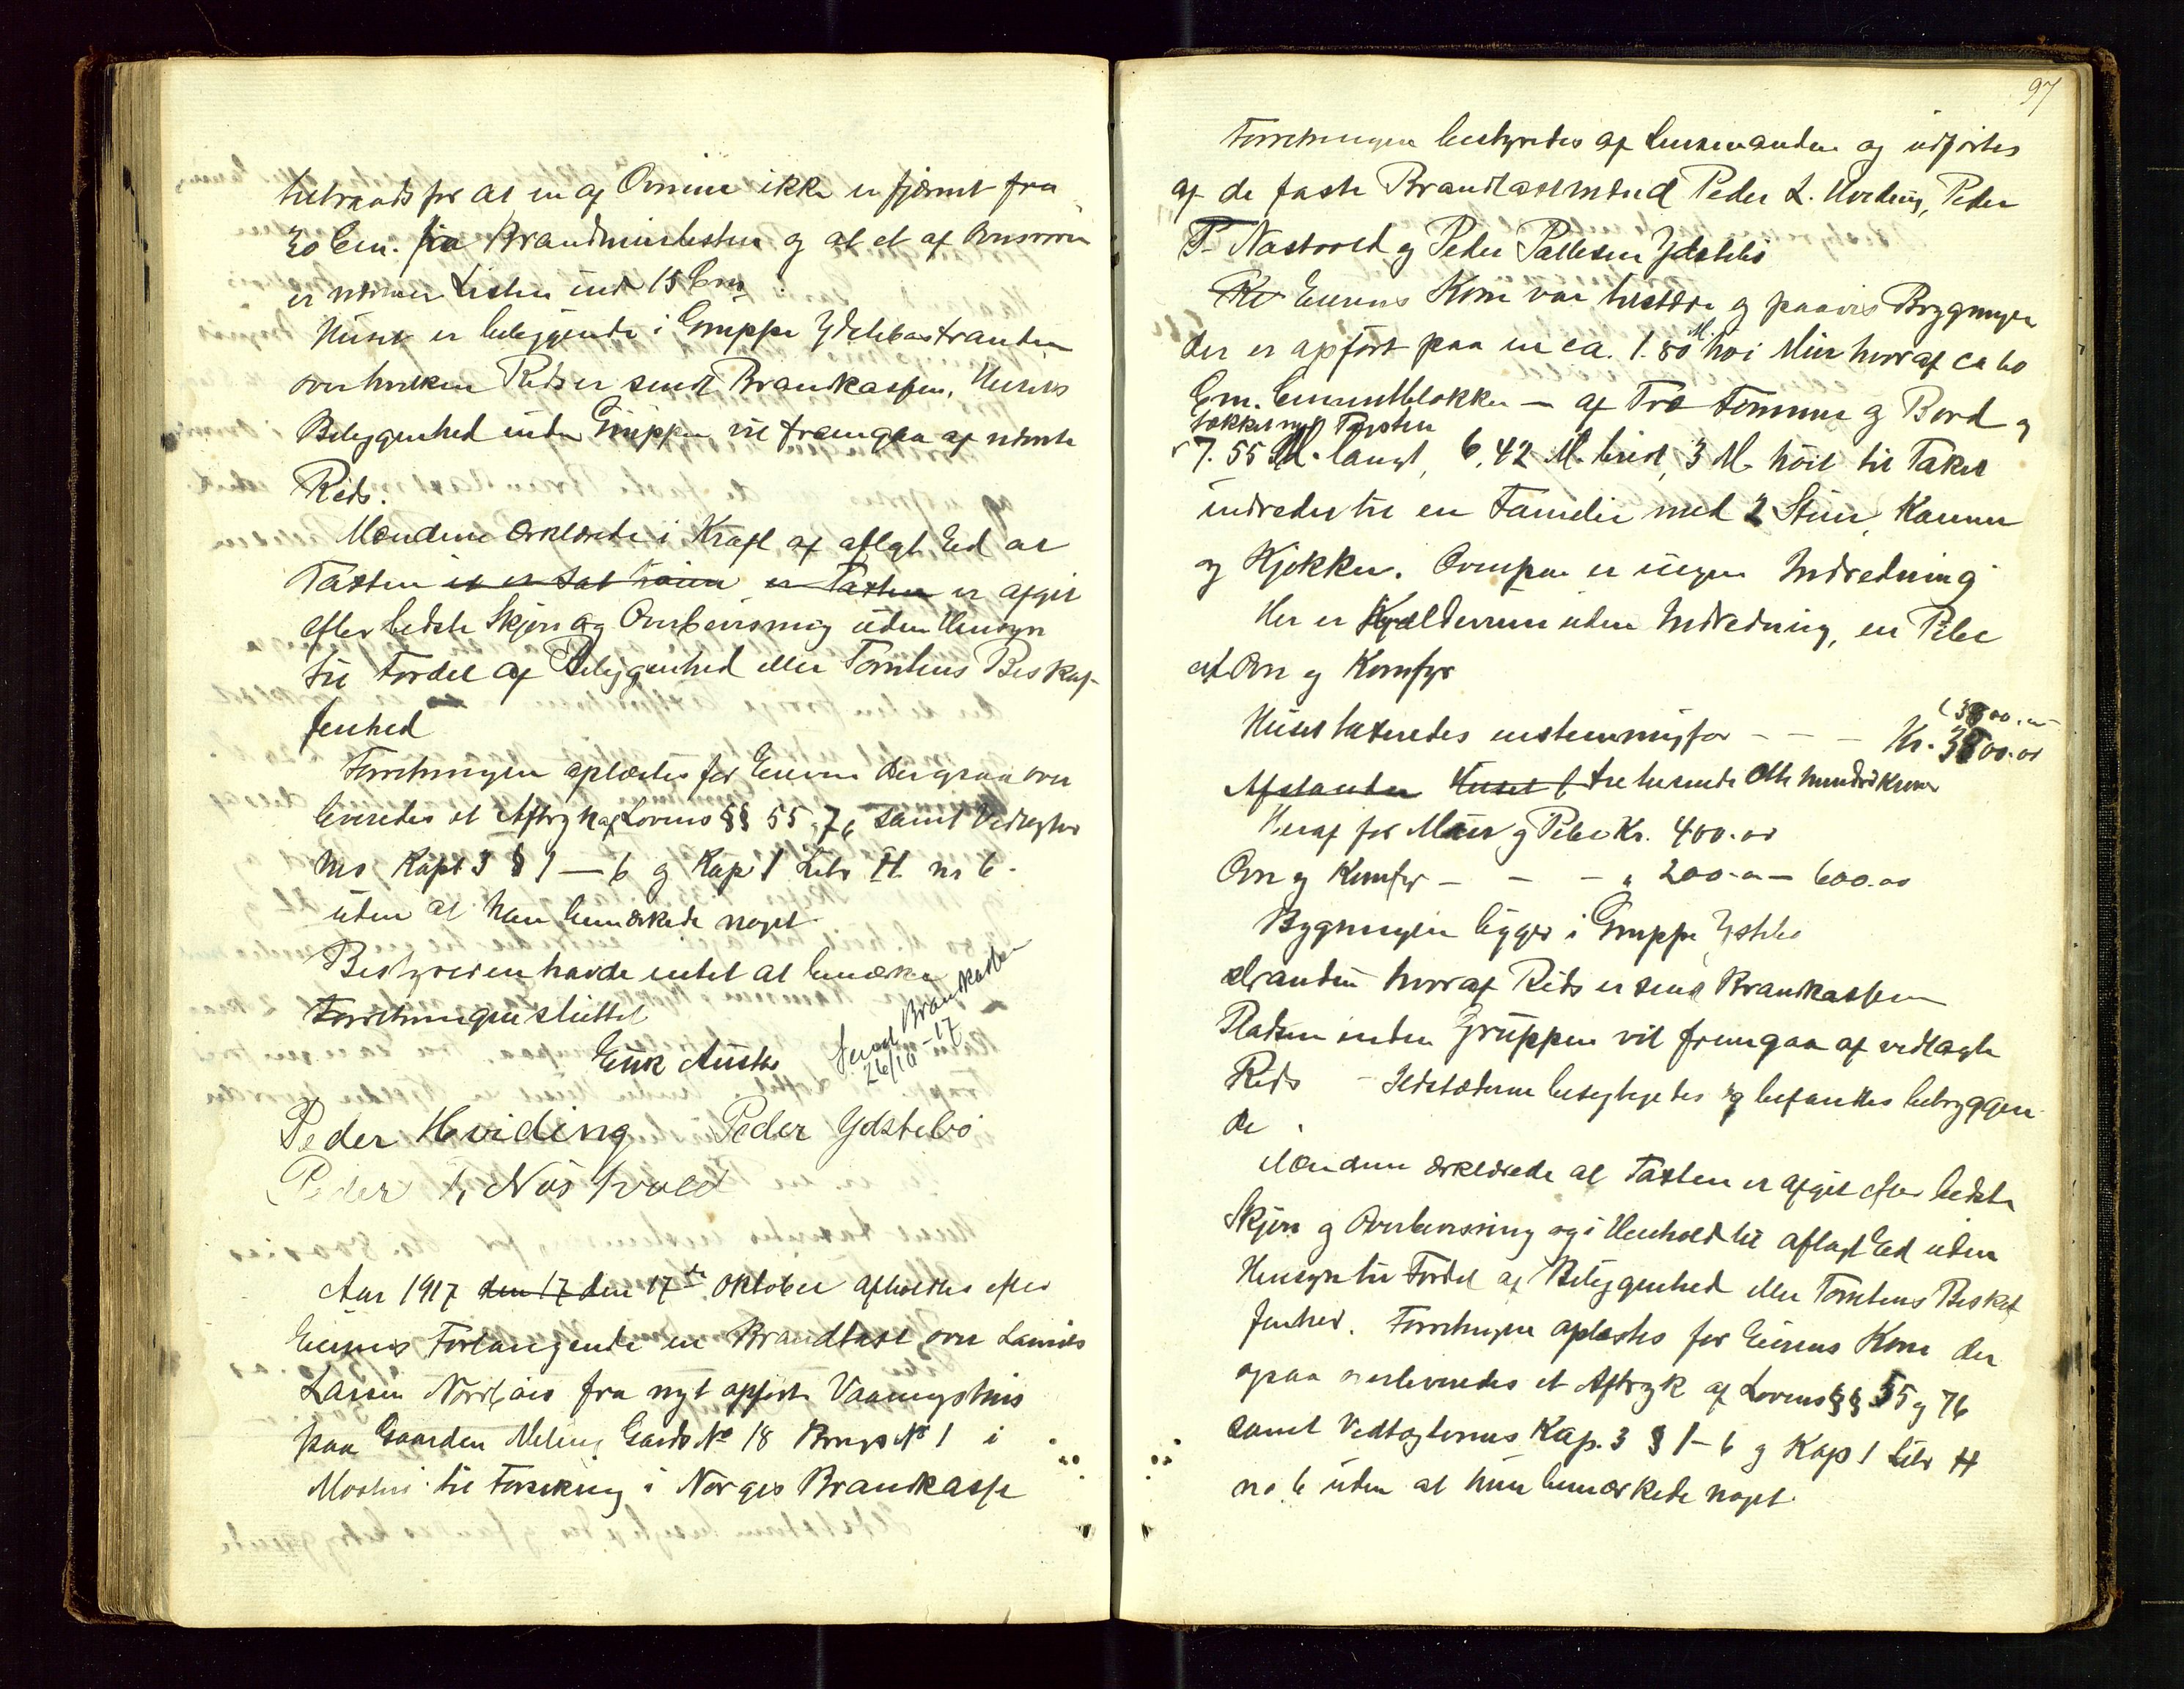 at en af Ovnene ikke er fjernet fra
20 Cm. fra Brandmurlisten og at et af Ovnsrören
er nærmere Listen end 15 Cm.
Huset er beliggende i Gruppe Ydstebøstranden
over hvilken Rids er sendt Brandkassen. Husets
Beliggenhed inden Gruppen vil fremgaa af nævnte
Rids.
Mændene erklærede i Kraft af aflagt Ed at
Taxten er Taxten er afgit
efter bedste Skjøn og Overbevisning uden Hensyn
til Fordel af Beliggenhed eller Tomtens Beskaf-
fenhed
Forretningen oplæstes for Eieren der ogsaa over
leveredes et Aftryk af Lovens §§ 55 76 samt Vedtægter
nes Kapt 3 § 1 — 6 og Kap 1 Litr H no 6.
uden at han bemærkede noget.
Bestyreren havde intet at bemærke
Forretningen sluttet
Eiik Austbø Sendt Brandkassen
26/10-17
Peder Hviding Peder Ydstebö
Peder T. Nös tvold
Aar 1917 den 17 den 17de Oktober afholdtes efter
Eierens Forlangende en Brandtaxt over Laurits
Larsen fra nyt opført Vaaningshus
paa Gaarden Meling Gards No 18 Brugs No 1 i
Mosterö til Forsikring i Norges Brandkasse
97
Forretningen bestyredes af Lensmanden og udførtes
af de faste Brandtaxtmænd Peder L. Hviding, Peder
T. Nøstvold og Peder Pallesen Ydstebö
Eierens Kone var tilstede og paaviste Bygningen
der er opført paa en ca. 1.80 M. høi Mur hvoraf ca 60
Cm. Cementblokker — af Træ Tömmer og Bord og
takket med Tagsten
7.55 M. langt, 6.42 M. bred, 3 M. höit til Taket
indredet til en Familie med 2 Stuer, Kammer
og Kjøkken. Ovenpaa er ingen Indredning
Her er Kjælderrum uden Indredning, en Pibe
et Ovn og Komfyr
Huset taxeredes enstemmig for - - - Kr. 3800.00
(3800.00
Afstanden Huset tre tusende Otte hundrede kroner
Heraf for Mur og Pibe Kr. 400.00
Ovn og Komfyr - - - " 200.00 — 600.00
Bygningen ligger i Gruppe Ydstebö
stranden hvoraf Rids er sendt Brandkassen
Pladsen inden Gruppen vil fremgaa af vedlagte
Rids - Ildstederne besigtigedes og befandtes betryggen
de.
Mændene erklærede at Taxten er afgit efter bedste
Skjøn og Overbevisning og i Henhold til aflagt Ed uden
Hensyn til Fordel af Beliggenhed eller Tomtens Beskaf
fenhed. Forretningen oplæstes for Eierens Kone der
ogsaa overleveredes et Aftryk af Lovens §§ 55 og 76
samt Vedtægternes Kap. 3 § 1 - 6 og Kap 1 Litr H
no 6 uden at hun bemærkede noget.